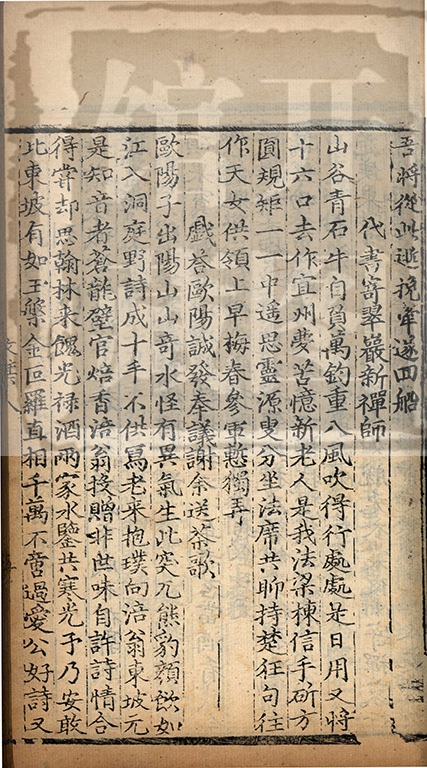 吾將從此逝挽牽遂回船
代書寄翠巖新禪師
山谷青石牛自負萬鈞重八風吹得行處處是日用又將
十六口去作宜州夢苦憶新老人是我法梁棟信手斫方
圓規矩一一中遥思靈源叟分坐法席共聊持楚狂句往
作天女供領上早梅春參軍慙獨弄
戲答歐陽誠發奉議謝余送茶歌
歐陽子出陽山山奇水怪有異氣生此突兀熊豹顔飲如
江入洞庭野詩成十手不供寫老来抱璞向涪翁東坡元
是知音者蒼龍璧官焙香涪翁投贈非世味自許詩情合
得嘗却思翰林来餽光禄酒兩家水鑒共寒光予乃安敢
比東坡有如玉槃金叵羅直相千萬不啻過愛公好詩又